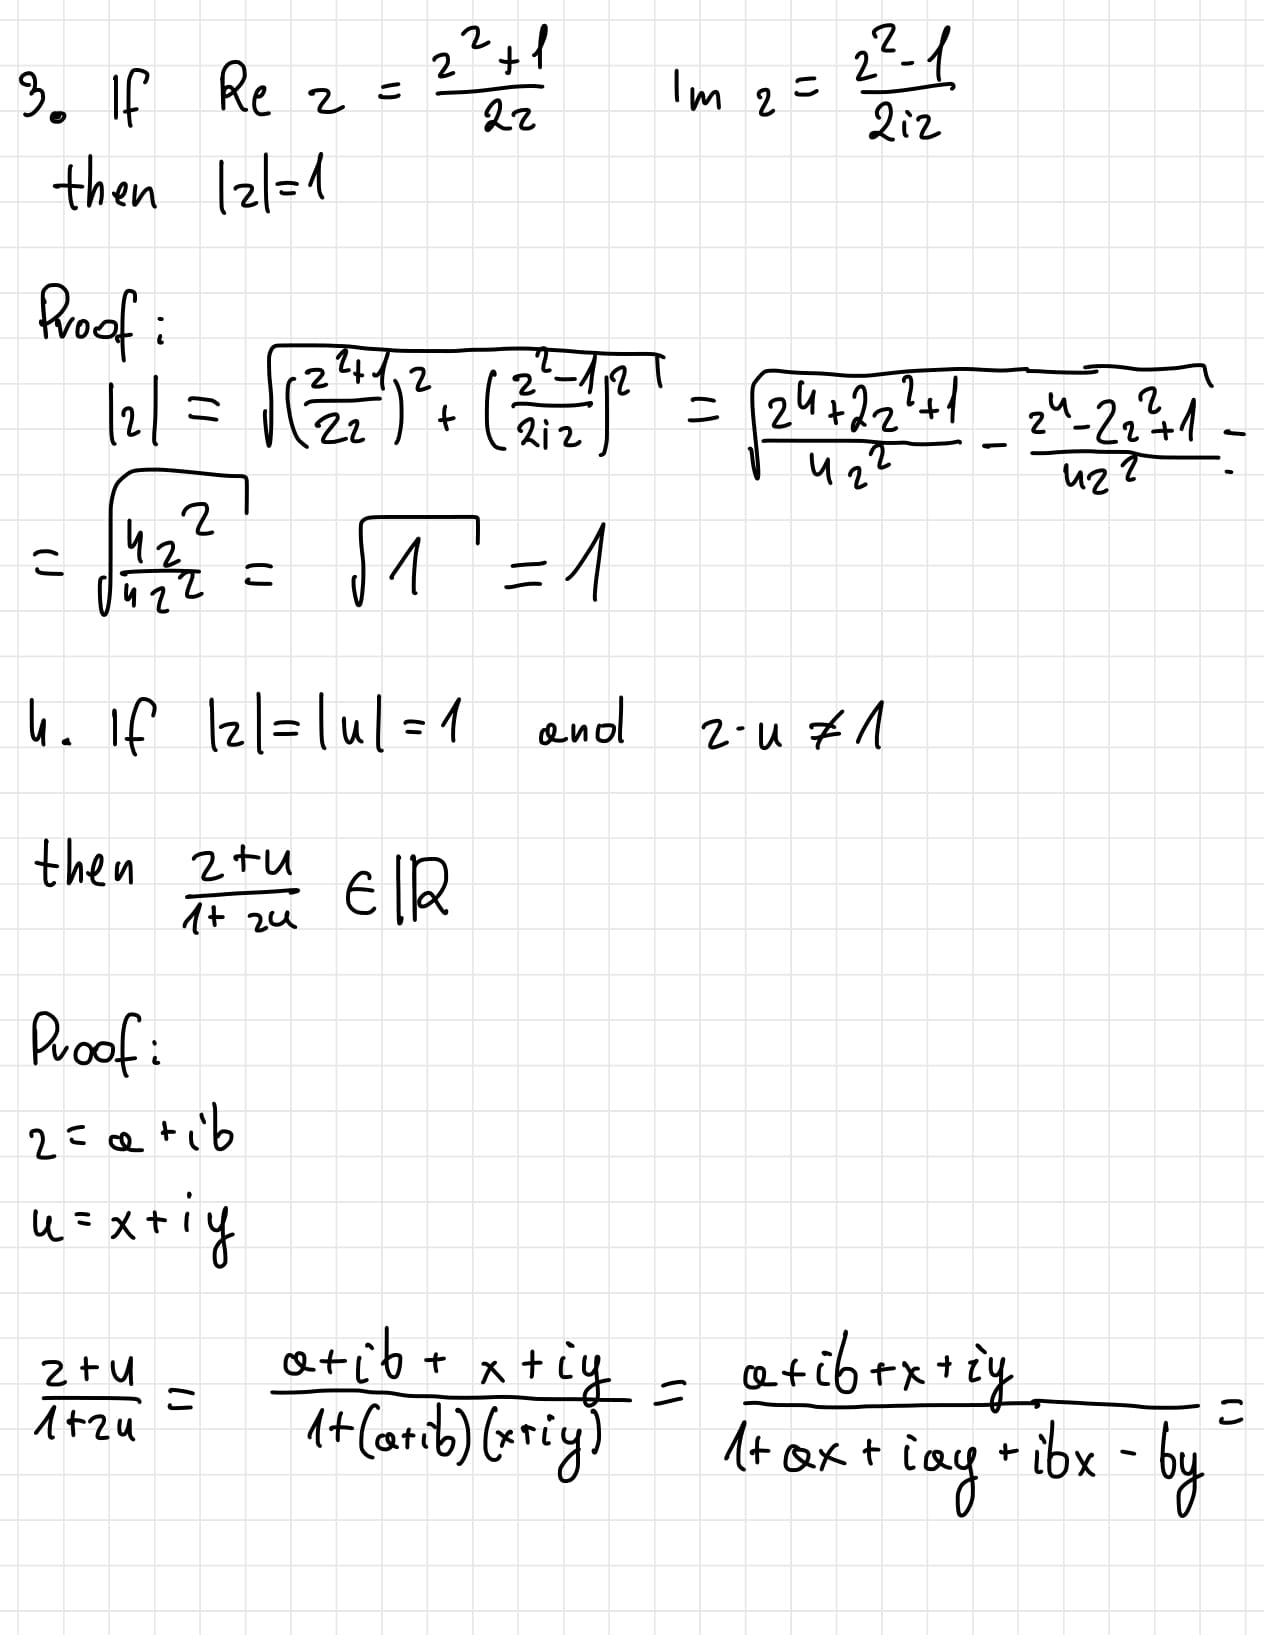 3. If Re z = \frac{z^2+1}{2z} Im z = \frac{z^2-1}{2iz}
then |z|=1
Proof:
|z| = \sqrt{(\frac{z^2+1}{2z})^2 + (\frac{z^2-1}{2iz})^2} = \sqrt{\frac{z^4+2z^2+1}{4z^2} - \frac{z^4-2z^2+1}{4z^2}} =
= \sqrt{\frac{4z^2}{4z^2}} = \sqrt{1} = 1
4. If |z|=|u|=1 and z·u ≠ 1
then \frac{z+u}{1+zu} ∈ ℝ
Proof:
z = a + ib
u = x + iy
\frac{z+u}{1+zu} = \frac{a+ib+x+iy}{1+(a+ib)(x+iy)} = \frac{a+ib+x+iy}{1+ax+iay+ibx-by} =